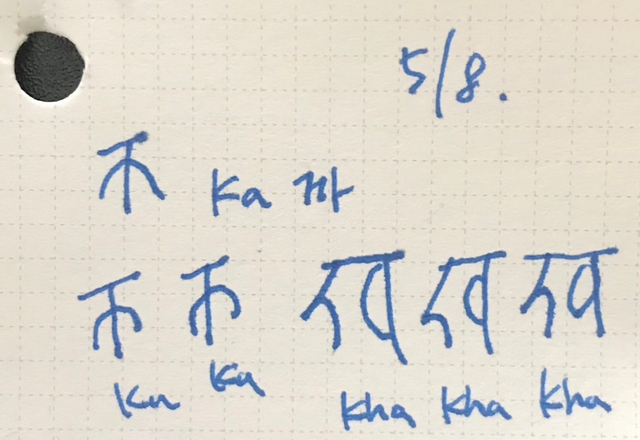 5/8.
क ka 까
क क ख ख ख
ka ka kha kha kha